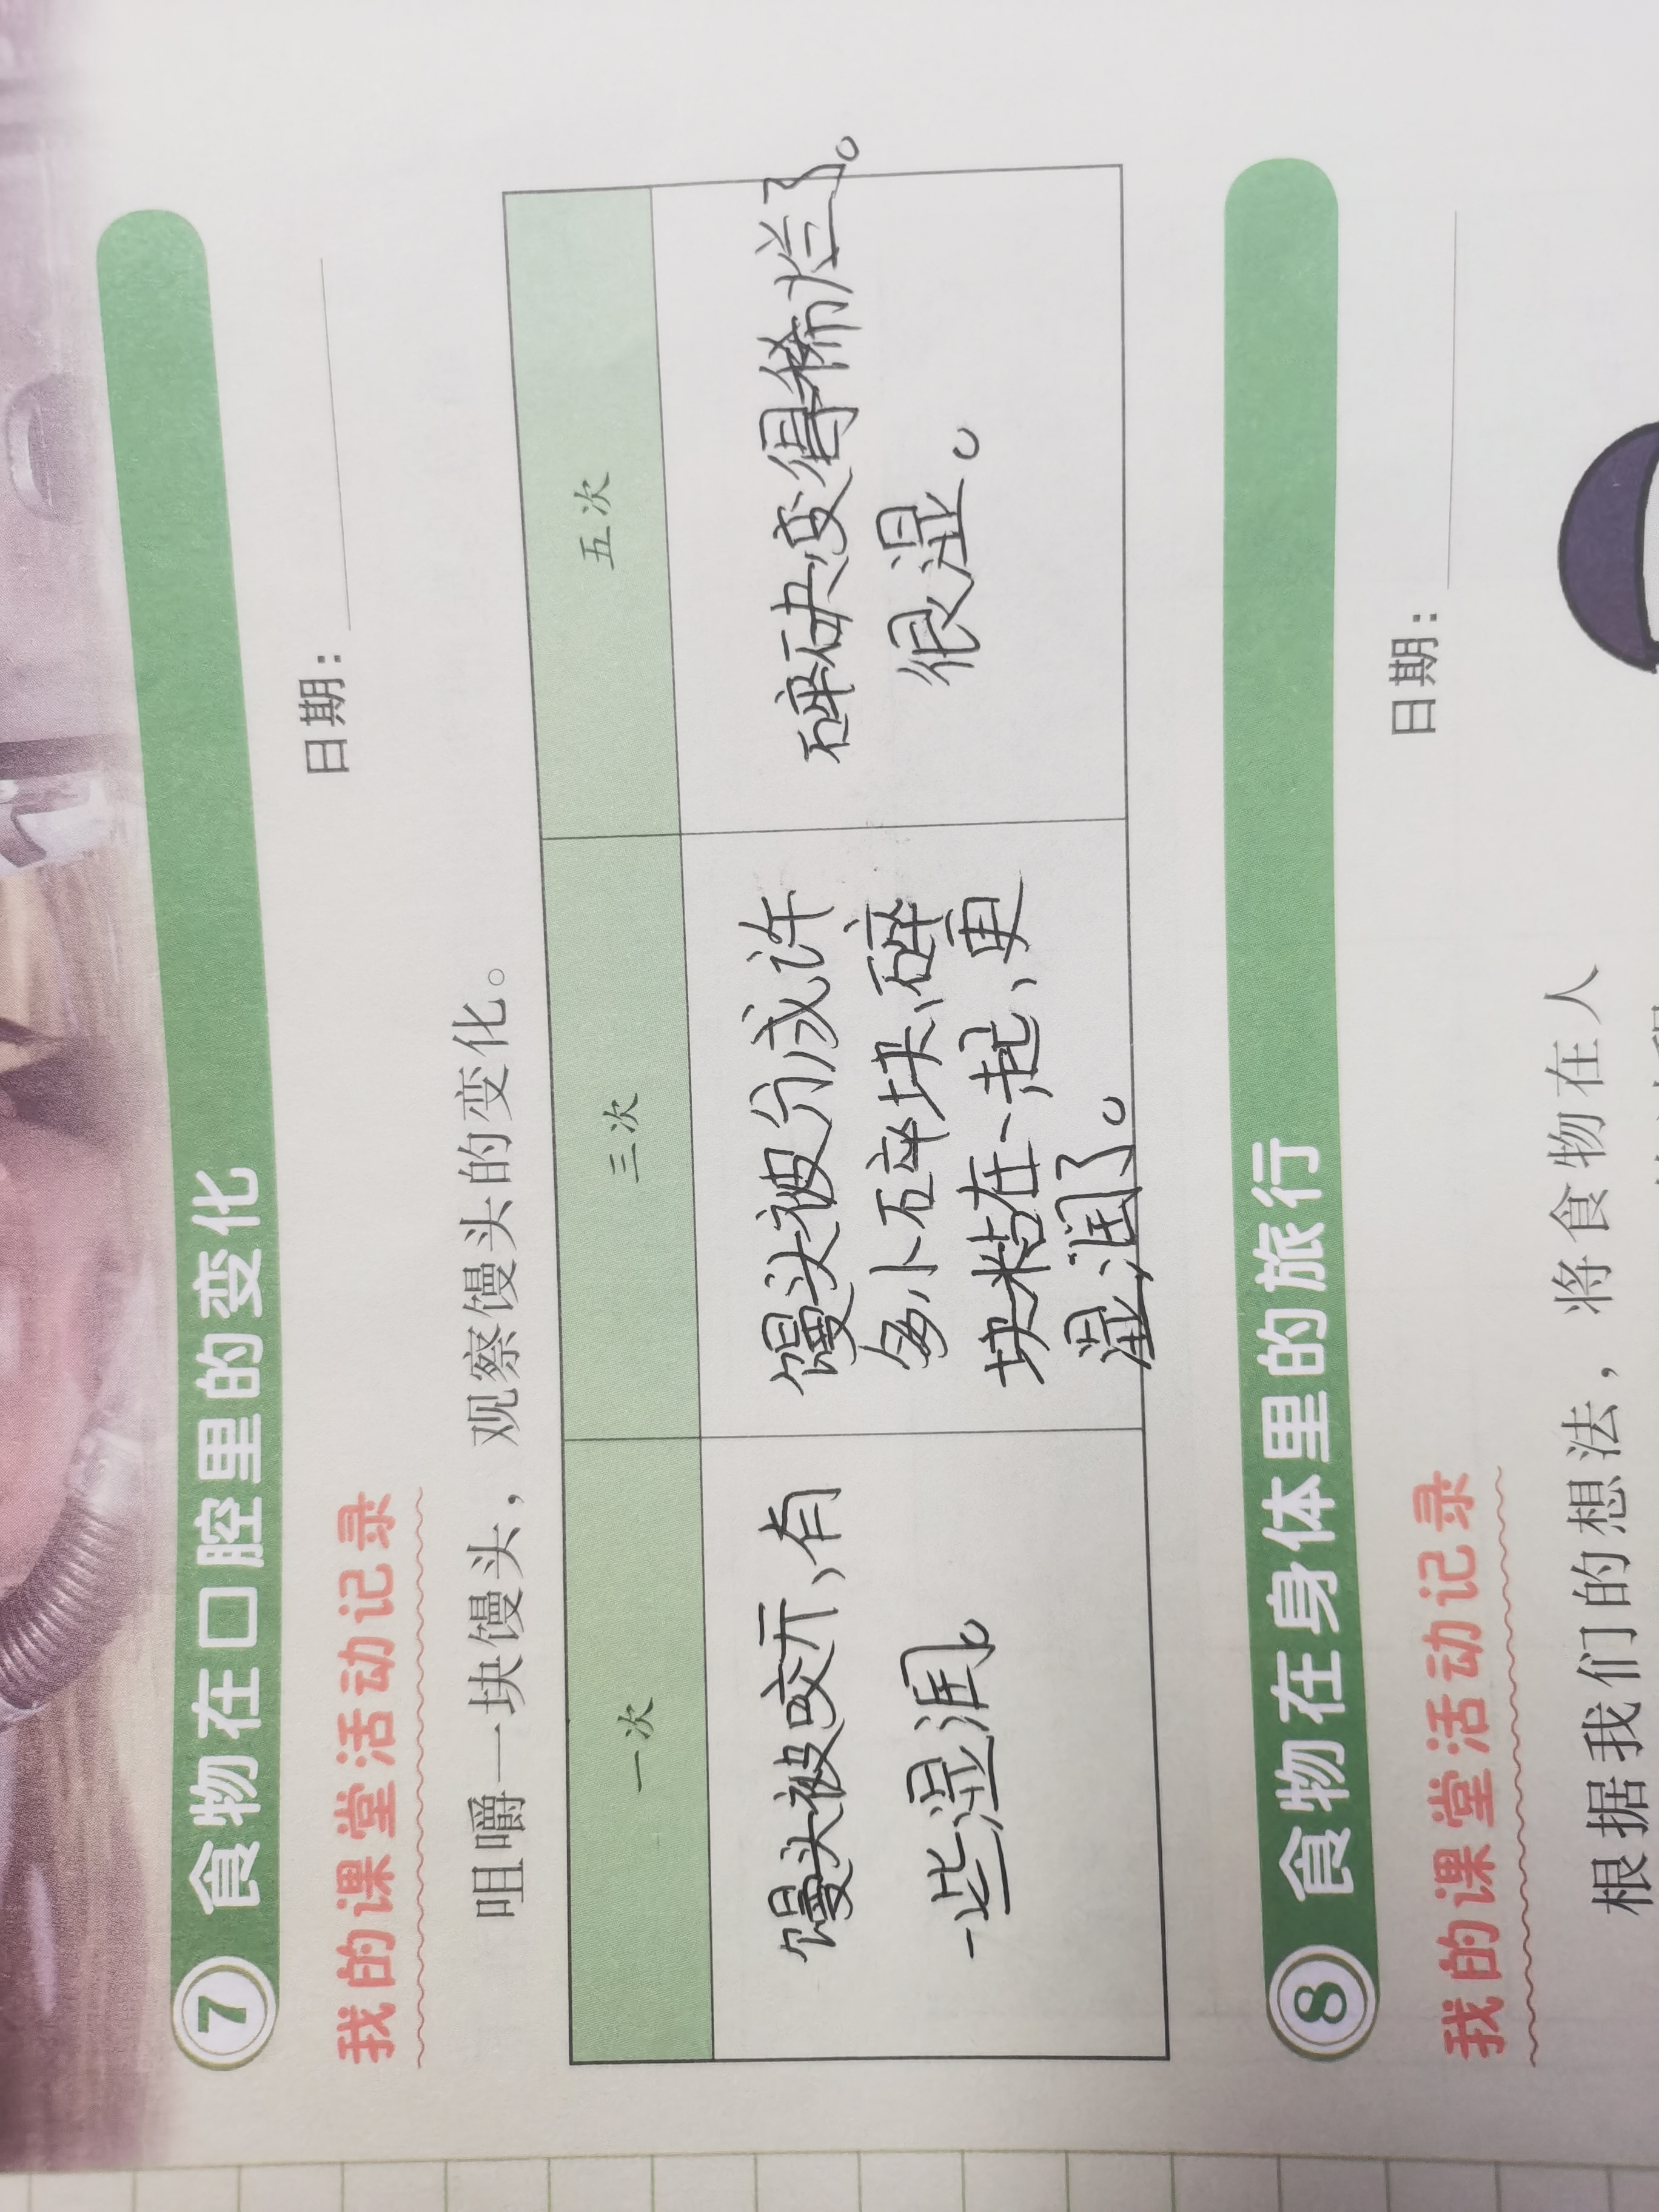 7 食物在口腔里的变化
日期：
我的课堂活动记录
咀嚼一块馒头，观察馒头的变化。
一次 三次 五次
馒头被咬开、有
一些湿润。
馒头被分成许
多小碎块、碎
块粘在一起、更
湿润了。
碎块变得稀烂了。
很湿。
8 食物在身体里的旅行
日期：
我的课堂活动记录
根据我们的想法，将食物在人